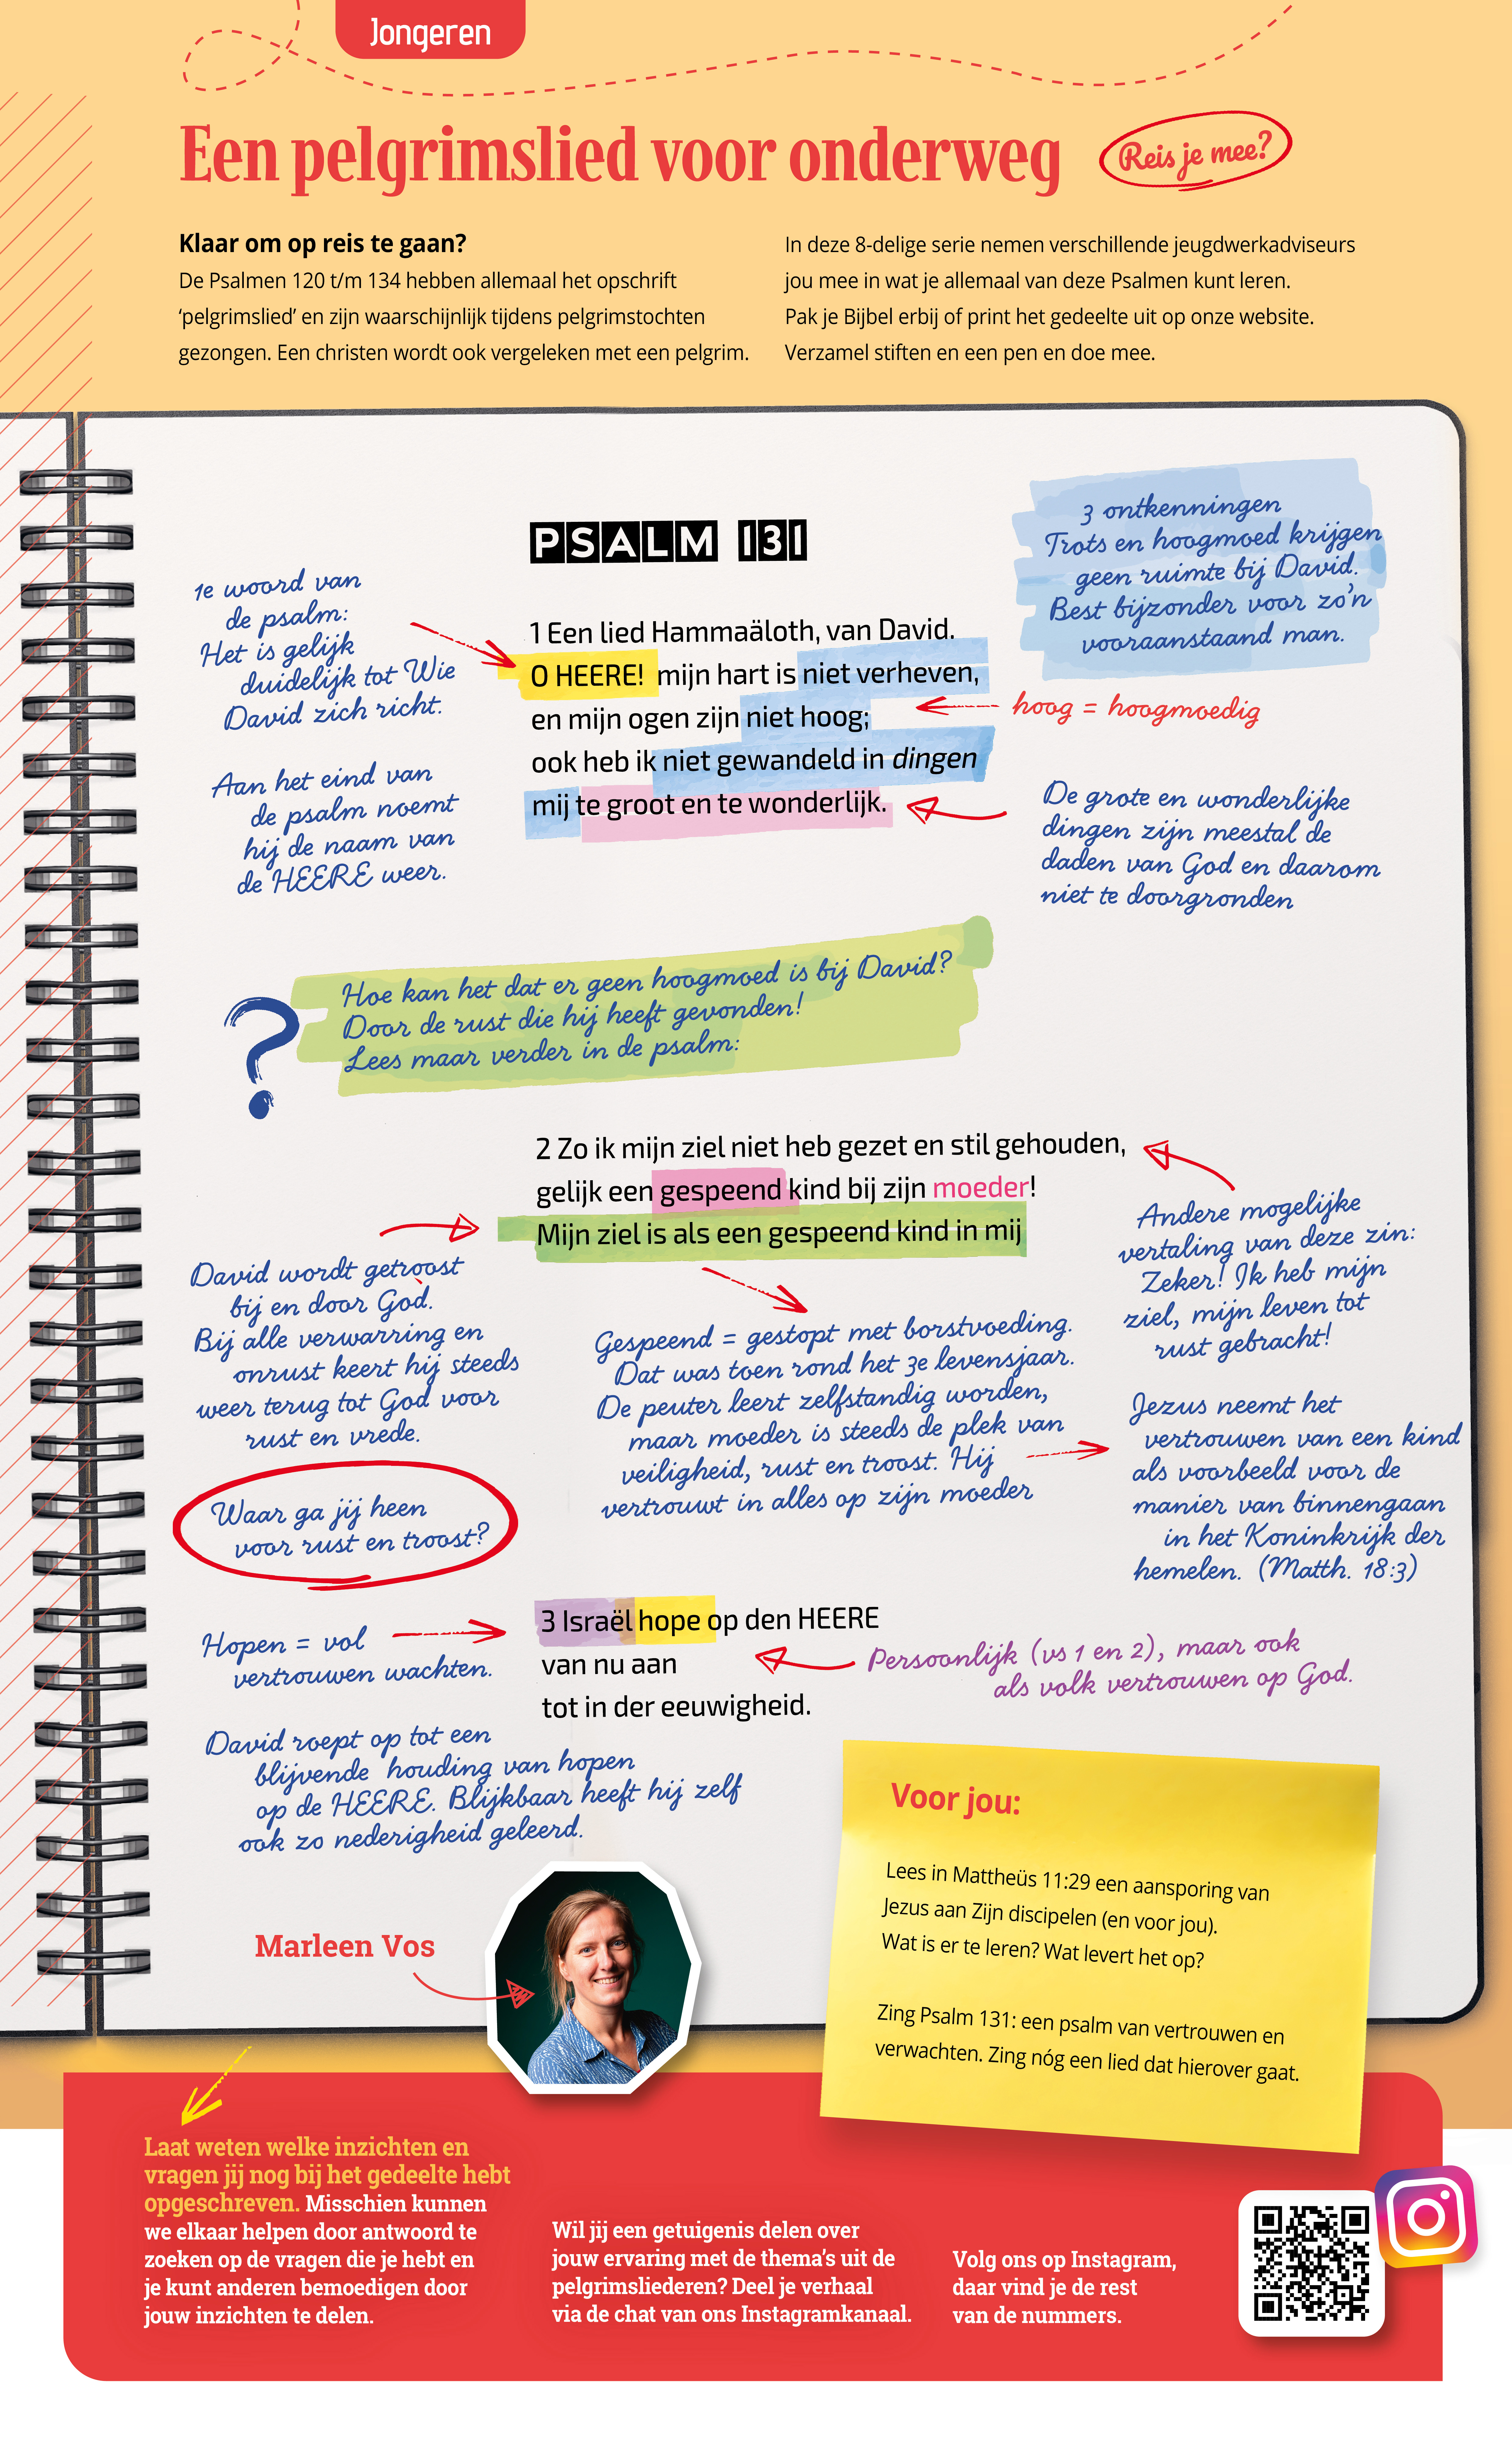 Jongeren
Een pelgrimslied voor onderweg
Reis je mee?
Klaar om op reis te gaan?
De Psalmen 120 t/m 134 hebben allemaal het opschrift
‘pelgrimslied’ en zijn waarschijnlijk tijdens pelgrimstochten
gezongen. Een christen wordt ook vergeleken met een pelgrim.
In deze 8-delige serie nemen verschillende jeugdwerkadviseurs
jou mee in wat je allemaal van deze Psalmen kunt leren.
Pak je Bijbel erbij of print het gedeelte uit op onze website.
Verzamel stiften en een pen en doe mee.
PSALM 131
3 ontkenningen
Trots en hoogmoed krijgen
geen ruimte bij David.
Best bijzonder voor zo’n
vooraanstaand man.
1e woord van
de psalm:
Het is gelijk
duidelijk tot Wie
David zich richt.
Aan het eind van
de psalm noemt
hij de naam van
de HEERE weer.
1 Een lied Hammaäloth, van David.
O HEERE! mijn hart is niet verheven,
en mijn ogen zijn niet hoog;
ook heb ik niet gewandeld in dingen
mij te groot en te wonderlijk.
hoog = hoogmoedig
De grote en wonderlijke
dingen zijn meestal de
daden van God en daarom
niet te doorgronden
?
Hoe kan het dat er geen hoogmoed is bij David?
Door de rust die hij heeft gevonden!
Lees maar verder in de psalm:
2 Zo ik mijn ziel niet heb gezet en stil gehouden,
gelijk een gespeend kind bij zijn moeder!
Mijn ziel is als een gespeend kind in mij
Andere mogelijke
vertaling van deze zin:
Zeker! Ik heb mijn
ziel, mijn leven tot
rust gebracht!
David wordt getroost
bij en door God.
Bij alle verwarring en
onrust keert hij steeds
weer terug tot God voor
rust en vrede.
Gespeend = gestopt met borstvoeding.
Dat was toen rond het 3e levensjaar.
De peuter leert zelfstandig worden,
maar moeder is steeds de plek van
veiligheid, rust en troost. Hij
vertrouwt in alles op zijn moeder
Jezus neemt het
vertrouwen van een kind
als voorbeeld voor de
manier van binnengaan
in het Koninkrijk der
hemelen. (Matth. 18:3)
Waar ga jij heen
voor rust en troost?
3 Israël hope op den HEERE
van nu aan
tot in der eeuwigheid.
Hopen = vol
vertrouwen wachten.
Persoonlijk (vs 1 en 2), maar ook
als volk vertrouwen op God.
David roept op tot een
blijvende houding van hopen
op de HEERE. Blijkbaar heeft hij zelf
ook zo nederigheid geleerd.
Marleen Vos
Voor jou:
Lees in Mattheüs 11:29 een aansporing van
Jezus aan Zijn discipelen (en voor jou).
Wat is er te leren? Wat levert het op?
Zing Psalm 131: een psalm van vertrouwen en
verwachten. Zing nóg een lied dat hierover gaat.
Laat weten welke inzichten en
vragen jij nog bij het gedeelte hebt
opgeschreven. Misschien kunnen
we elkaar helpen door antwoord te
zoeken op de vragen die je hebt en
je kunt anderen bemoedigen door
jouw inzichten te delen.
Wil jij een getuigenis delen over
jouw ervaring met de thema’s uit de
pelgrimsliederen? Deel je verhaal
via de chat van ons Instagramkanaal.
Volg ons op Instagram,
daar vind je de rest
van de nummers.